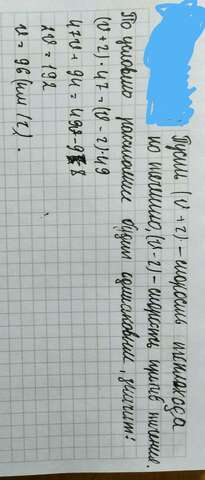 Пусть (v + 2) – скорость теплохода
по течению, (v - 2) – скорость против течения.
По условию расстояние будет одинаковые, значит:
(v + 2) · 47 = (v - 2) · 49
47v + 94 = 49v - 98
2v = 192
v = 96 (км / ч).